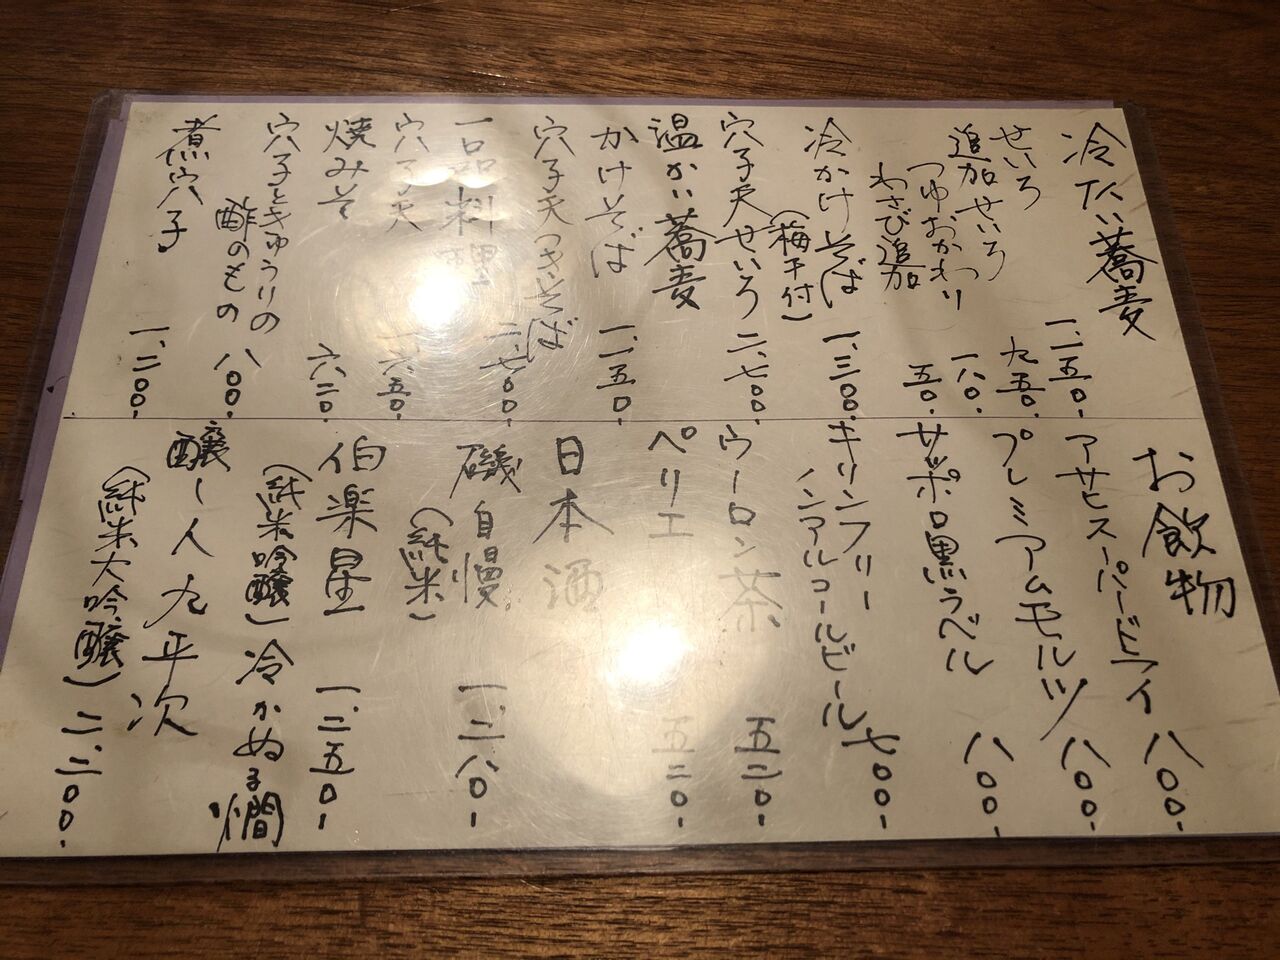 冷たい蕎麦
せいろ 一、一五〇-
追加せいろ 九五〇-
つゆおかわり 一八〇-
わさび追加 五〇-
冷かけそば 一、三〇〇-
(梅干付)
穴子天せいろ 二、七〇〇-
温かい蕎麦
かけそば 一、一五〇-
穴子天つきそば 二、七〇〇-
一品料理
穴子天 一、六五〇-
焼みそ 六二〇-
穴子ときゅうりの
酢のもの 八〇〇-
煮穴子 一、二〇〇-
お飲物
アサヒスーパードライ 八〇〇-
プレミアムモルツ 八〇〇-
サッポロ黒ラベル 八〇〇-
キリンフリー
ノンアルコールビール 七〇〇-
ウーロン茶 五二〇-
ペリエ 五二〇-
日本酒
磯自慢 一、二八〇-
(純米)
伯楽星 一、二五〇-
(純米吟醸) 冷かぬる燗
醸し人九平次
(純米大吟醸) 二、二〇〇-